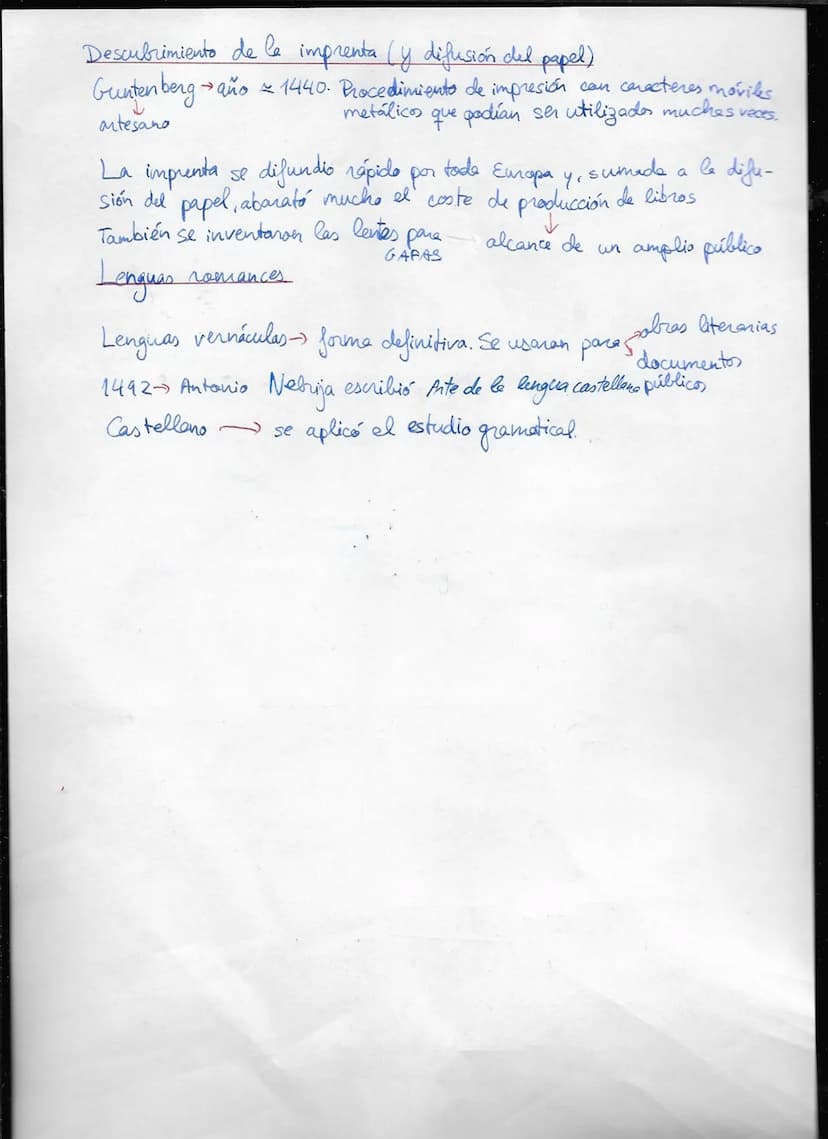 Descubrimiento de la imprenta (y difusión del papel)
Guntenberg → año ≃ 1440. Procedimiento de impresión con caracteres móviles
artesano
metálicos que podían ser utilizados muchas veces.
La imprenta se difundio rápido por toda Europa y, sumada a la difu-
sión del papel, abarató mucho el coste de producción de libros
También se inventaron las lentes para GAFAS
alcance de un amplio público
Lenguas romances
Lenguas vernáculas → forma definitiva. Se usaran para
obras literarias
documentos públicos
1492 → Antonio Nebrija escribió Arte de la lengua castellana
Castellano → se aplicó el estudio gramatical.